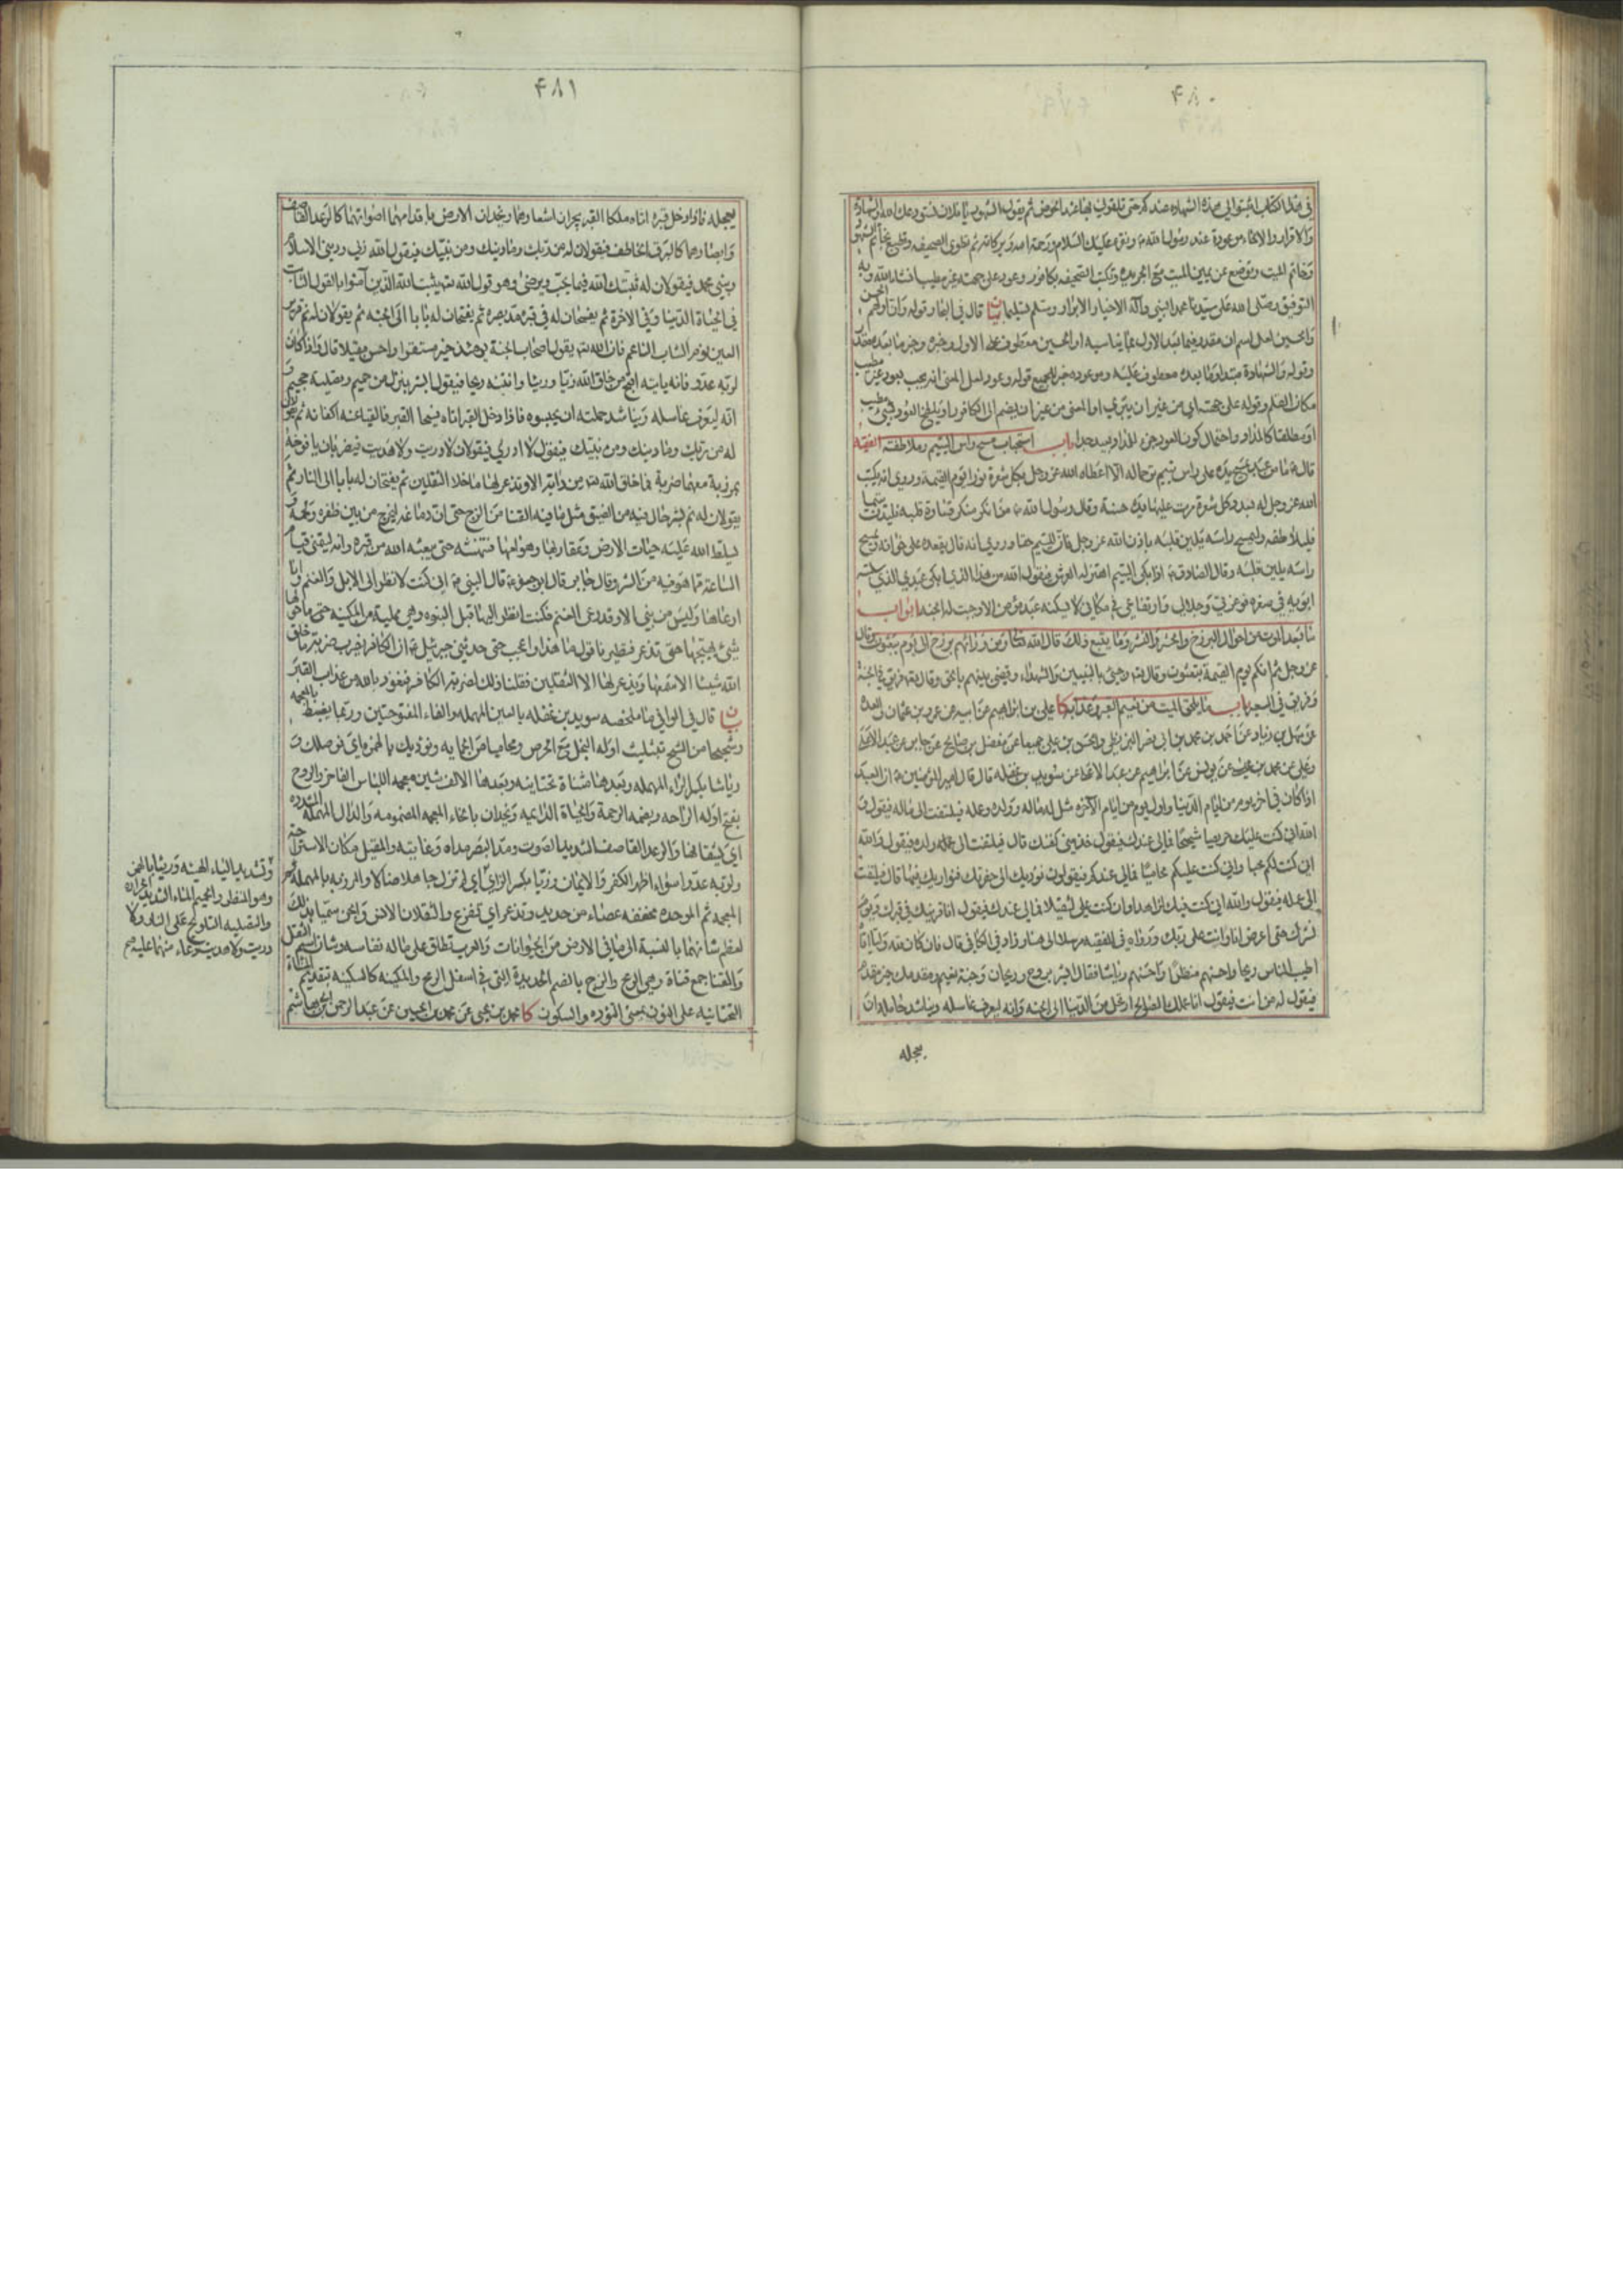 ۴۸۰
في هذا الكتاب اثبتوا لي هذه الشهادة عندكم حتى تلقوني بها عند الحوض ثم يقول الشهود يا فلان نستودعك الله والشهادة
والاقرار والاخاء موعودة عند رسول الله ونقرء عليك السلام ورحمة الله وبركاته ثم تطوى الصحيفة وتطبع
وخاتم الميت وتوضع عن يمين الميت مع الجريدة وتكتب الصحيفة بكافور وعود على جهته غير مطيب انشاء الله وبه
التوفيق وصلى الله على سيدنا محمد النبي وآله الاخيار الابرار وسلم تسليما بيان قال في البحار قوله وان
والحسين لعل اسم ان مقدر فيما بعد الاول
وقوله والشهادة مبتدا وما بعده معطوف عليه وموعودة خبر للجميع قوله وعود لعل المعنى انه يجب بعود غير مطيب
مكان القلم وقوله على جهته اي من غير ان يبرى او المعنى من غير ان يضم الى الكافور
او مطلقا كالمداد واحتمال كون العود جزء للمداد بعيد جدا باب استحباب مسح راس اليتيم وملاطفته الفقيه
قال ما من عبد يمسح يده على راس يتيم ترحما له الا اعطاه الله عز وجل بكل شعرة نورا يوم القيمة وروي انه يكتب
الله عز وجل له بعدد كل شعرة مرت عليها يده حسنة وقال رسول الله من انكر منكم قساوة قلبه فليدن يتيما
فيلاطفه وليمسح راسه يلين قلبه باذن الله عز وجل فان لليتيم حقا وروي انه قال يقعده على خوانه ويمسح
راسه يلين قلبه وقال الصادق اذا بكى اليتيم اهتز له العرش فيقول الله من هذا الذي ابكى عبدي الذي سلبته
ابويه في صغره فوعزتي وجلالي وارتفاعي في مكاني لا يسكته عبد مؤمن الا وجبت له الجنة ابواب
ما بعد الموت من احوال البرزخ والحشر والنشر وما يتبع ذلك قال الله تعالى ومن ورائهم برزخ الى يوم يبعثون وقال
عز وجل ثم انكم يوم القيمة تبعثون وقال وجيء بالنبيين والشهداء وقضى بينهم بالحق وقال فريق في الجنة
وفريق في السعير باب ما يلحق الميت من نعيم القبر وعذابه كا علي بن ابراهيم عن ابيه عن عمرو بن عثمان والعدة
عن سهل بن زياد عن احمد بن محمد بن ابي نصر البزنطي والحسن بن علي جميعا عن مفضل بن صالح عن جابر عن عبد الاعلى
وعلي عن محمد بن عيسى عن يونس عن ابراهيم عن عبد الاعلى عن سويد بن غفلة قال قال امير المؤمنين ان العبد
اذا كان في آخر يوم من ايام الدنيا واول يوم من ايام الآخرة مثل له ماله وولده وعمله فيلتفت الى ماله فيقول و
الله اني كنت عليك حريصا شحيحا فمالي عندك فيقول خذ مني كفنك قال فيلتفت الى ولده فيقول والله
اني كنت لكم محبا واني كنت عليكم محاميا فمالي عندكم فيقولون نؤديك الى حفرتك فنواريك فيها قال فيلتفت
الى عمله فيقول والله اني كنت فيك لزاهدا وان كنت علي لثقيلا فمالي عندك فيقول انا قرينك في قبرك ويوم
نشرك حتى اعرض انا وانت على ربك ورواه في الفقيه مرسلا الى هنا وزاد في الكافي قال فان كان لله وليا اتاه
اطيب الناس ريحا واحسنهم منظرا واحسنهم رياشا فقال ابشر بروح وريحان وجنة نعيم ومقدمك خير مقدم
فيقول له من انت فيقول انا عملك الصالح ارتحل من الدنيا الى الجنة وانه ليعرف غاسله ويناشد حامله ان
يعجله
۴۸۱
يعجله فاذا دخل قبره اتاه ملكا القبر يجران اشعارهما ويخدان الارض باقدامهما اصواتهما كالرعد القاصف
وابصارهما كالبرق الخاطف فيقولان له من ربك وما دينك ومن نبيك فيقول الله ربي وديني الاسلام
ونبيي محمد فيقولان له ثبتك الله فيما يحب ويرضى وهو قول الله يثبت الله الذين آمنوا بالقول الثابت
في الحياة الدنيا وفي الآخرة ثم يفسحان له في قبره مد بصره ثم يفتحان له بابا الى الجنة ثم يقولان له نم قرير
العين نوم الشاب الناعم فان الله يقول اصحاب الجنة يومئذ خير مستقرا واحسن مقيلا قال واذا كان
لربه عدوا فانه ياتيه اقبح من خلق الله زيا ورؤيا وانتنه ريحا فيقول ابشر بنزل من حميم وتصلية جحيم و
انه ليعرف غاسله ويناشد حملته ان يحبسوه فاذا دخل القبر اتاه ممتحنا القبر فالقيا عنه اكفانه ثم يقولان
له من ربك وما دينك ومن نبيك فيقول لا ادري فيقولان لا دريت ولا هديت فيضربان يافوخه
بمرزبة معهما ضربة ما خلق الله من دابة الا وتذعر لها ما خلا الثقلين ثم يفتحان له بابا الى النار ثم
يقولان له نم بشر حال فيه من الضيق مثل ما فيه القنا من الزج حتى ان دماغه ليخرج من بين ظفره ولحمه و
يسلط الله عليه حيات الارض وعقاربها وهوامها فتنهشه حتى يبعثه الله من قبره وانه ليتمنى قيام
الساعة مما هو فيه من الشر وقال جابر قال ابو جعفر قال النبي اني كنت لانظر الى الابل والغنم وانا
ارعاها وليس من نبي الا وقد رعى الغنم فكنت انظر اليها قبل النبوة وهي متمكنة في المكينة ما حولها
شيء يهيجها حتى تذعر فتطير فاقول ما هذا واعجب حتى حدثني جبرئيل ان الكافر يضرب ضربة ما خلق
الله شيئا الا سمعها ويذعر لها الا الثقلين فقلنا ذلك لضربة الكافر فنعوذ بالله من عذاب القبر
بيان قال في الوافي ما ملخصه سويد بن غفلة بالسين المهملة والفاء المفتوحتين وربما يضبط بالمعجمة
وشحيحا من الشح بتثليث اوله البخل مع الحرص ومحاميا من الحماية ونؤديك بالهمزة اي نوصلك و
رياشا بكسر الراء المهملة وبعدها مثناة تحتانية وبعدها الالف شين معجمة اللباس الفاخر والروح
بفتح اوله الراحة وبضمه الرحمة والحياة الدائمة ويخدان بالخاء المعجمة المضمومة والدال المهملة المشددة
اي يشقانها والرعد القاصف الشديد الصوت ومد البصر مداه وغايته والمقيل مكان الاستراحة
ولربه عدوا سواء اظهر الكفر والايمان وزيا بكسر الزاي اي
المعجمة ثم الموحدة مخففة عصاة من حديد وتذعر اي تفزع والثقلان الانس والجن سميا بذلك
لعظم شانهما بالنسبة الى ما في الارض من الحيوانات والعرب تطلق على ما له نفاسة وشان اسم الثقل
والقنا جمع قناة وهي الرمح والزج بالضم الحديدة التي في اسفل الرمح والمكينة كالسكينة بتقديم المثناة
التحتانية على النون بمعنى التؤدة والسكون كا محمد بن يحيى عن محمد بن الحسين عن عبد الرحمن بن ابي هاشم
وتشديد الياء الهيئة ورئيا بالهمز
وهو المنظر والحميم الماء الشديد الحرارة
والتصلية التلويح على النار ولا
دريت ولا هديت دعاء منهما عليه